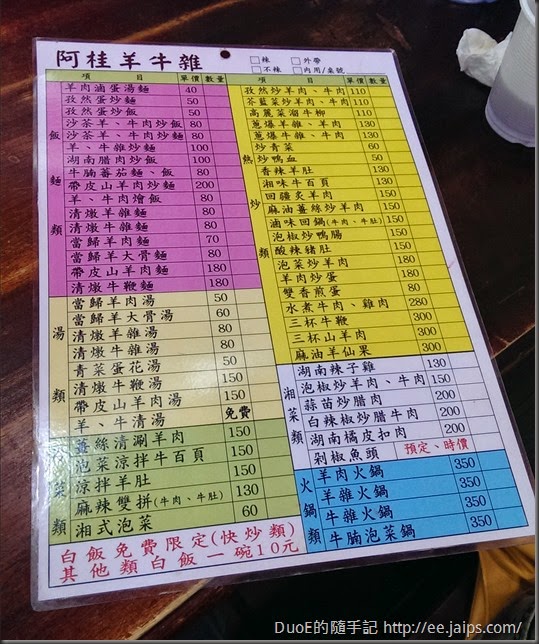 阿桂羊牛雜
□辣 □外帶
□不辣 □內用/桌號
項 目 單價 數量
飯麵類
羊肉滷蛋湯麵 40
孜然蛋炒麵 50
孜然蛋炒飯 50
沙茶羊、牛肉炒飯 80
沙茶羊、牛肉炒麵 80
羊、牛雜炒麵 100
湖南臘肉炒飯 100
牛腩蕃茄麵、飯 80
帶皮山羊肉炒麵 200
羊、牛肉燴飯 80
清燉羊雜麵 80
清燉牛雜麵 80
當歸羊肉麵 70
當歸羊大骨麵 80
帶皮山羊肉麵 180
清燉牛鞭麵 180
湯類
當歸羊肉湯 50
當歸羊大骨湯 60
清燉羊雜湯 80
清燉牛雜湯 80
青菜蛋花湯 50
清燉牛鞭湯 150
帶皮山羊肉湯 150
羊、牛清湯 免費
菜類
薑絲清涮羊肉 150
泡菜涼拌牛百頁 150
涼拌羊肚 150
麻辣雙拼(牛肉、牛肚) 130
湘式泡菜 60
項 目 單價 數量
熱炒類
孜然炒羊肉、牛肉 110
芥藍菜炒羊肉、牛肉 110
高麗菜溜牛柳 110
蔥爆羊雜、羊肉 130
蔥爆牛雜、牛肉 130
炒青菜 60
炒鴨血 50
香辣羊肚 150
湘味牛百頁 130
回疆炙羊肉 150
麻油薑絲炒羊肉 150
滷味回鍋(牛肉、牛肚) 150
泡椒炒鴨腸 150
酸辣豬肚 150
泡菜炒羊肉 180
羊肉炒蛋 80
雙香煎蛋 80
水煮牛肉、雞肉 280
三杯牛鞭 300
三杯山羊肉 300
麻油羊仙果 300
湘菜類
湖南辣子雞 130
泡椒炒羊肉、牛肉 150
蒜苗炒臘肉 200
白辣椒炒臘牛肉 200
湖南橘皮扣肉 200
剁椒魚頭 預定、時價
火鍋類
羊肉火鍋 350
羊雜火鍋 350
牛雜火鍋 350
牛腩泡菜鍋 350
白飯免費限定(快炒類)
其他類白飯一碗10元
DuoE的隨手記 http://ee.jaips.com/